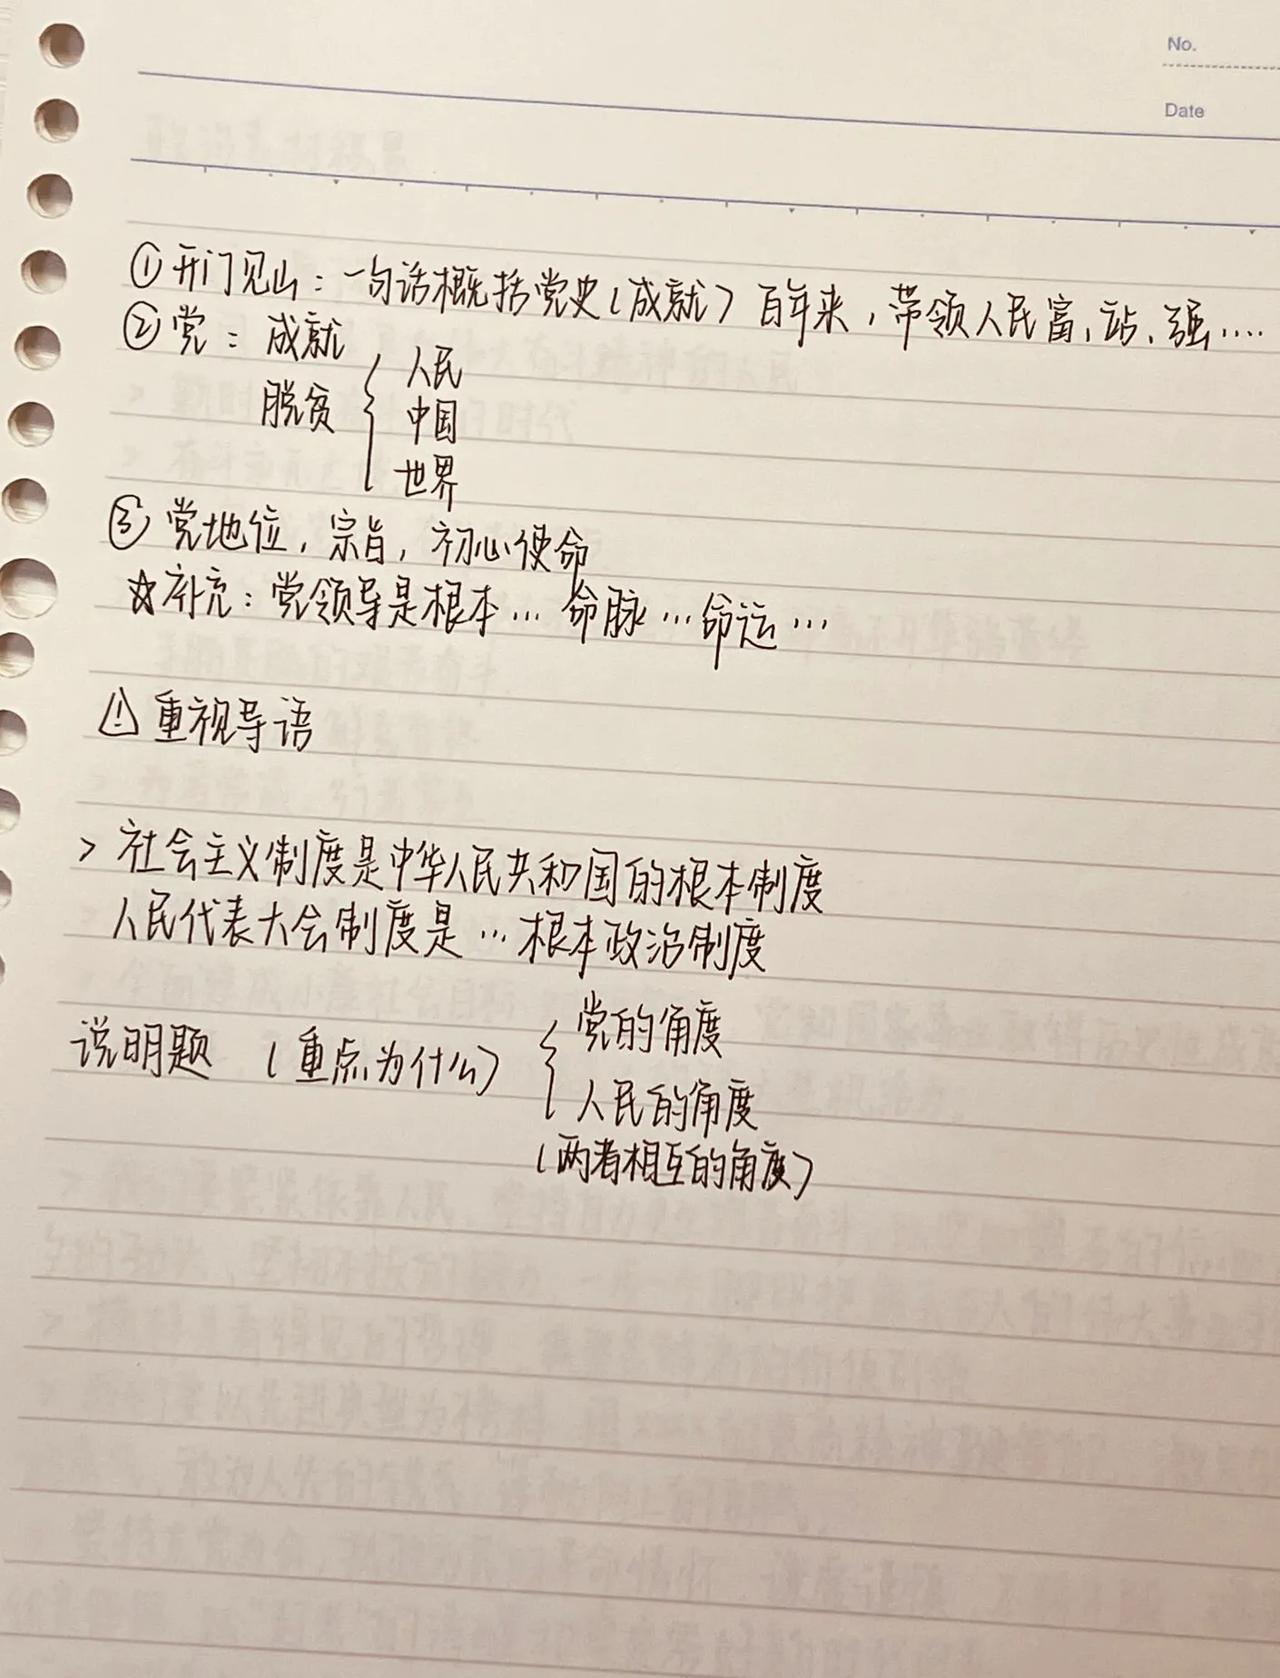 No.
Date
①开门见山：一句话概括党史（成就）百年来，带领人民富、站、强....
②党：成就
脱贫 { 人民
中国
世界
③党地位，宗旨，初心使命
☆补充：党领导是根本…命脉…命运…
⚠重视导语
> 社会主义制度是中华人民共和国的根本制度
人民代表大会制度是…根本政治制度
说明题（重点为什么） { 党的角度
人民的角度
（两者相互的角度）